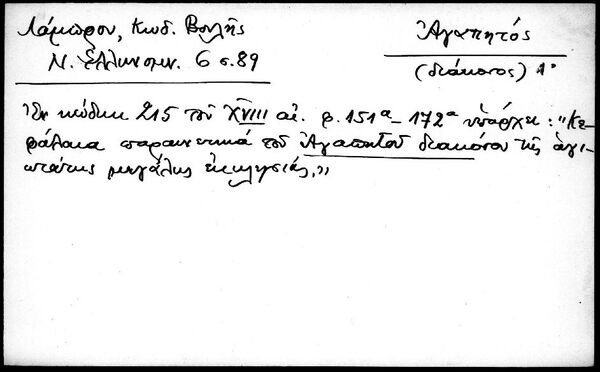 Λάμπρον, Κωδ. Βουλῆς
Ν. Ἑλληνομν. 6 σ. 89
Ἀγαπητός
(διάκονος) 1ον
Ἐν κώδικι 215 τοῦ XVIII αἰ. φ. 151α–172α ὑπάρχει: "Κε
φάλαια παραινετικά τοῦ Ἀγαπητοῦ διακόνου τῆς ἁγι
ωτάτης μεγάλης ἐκκλησίας."